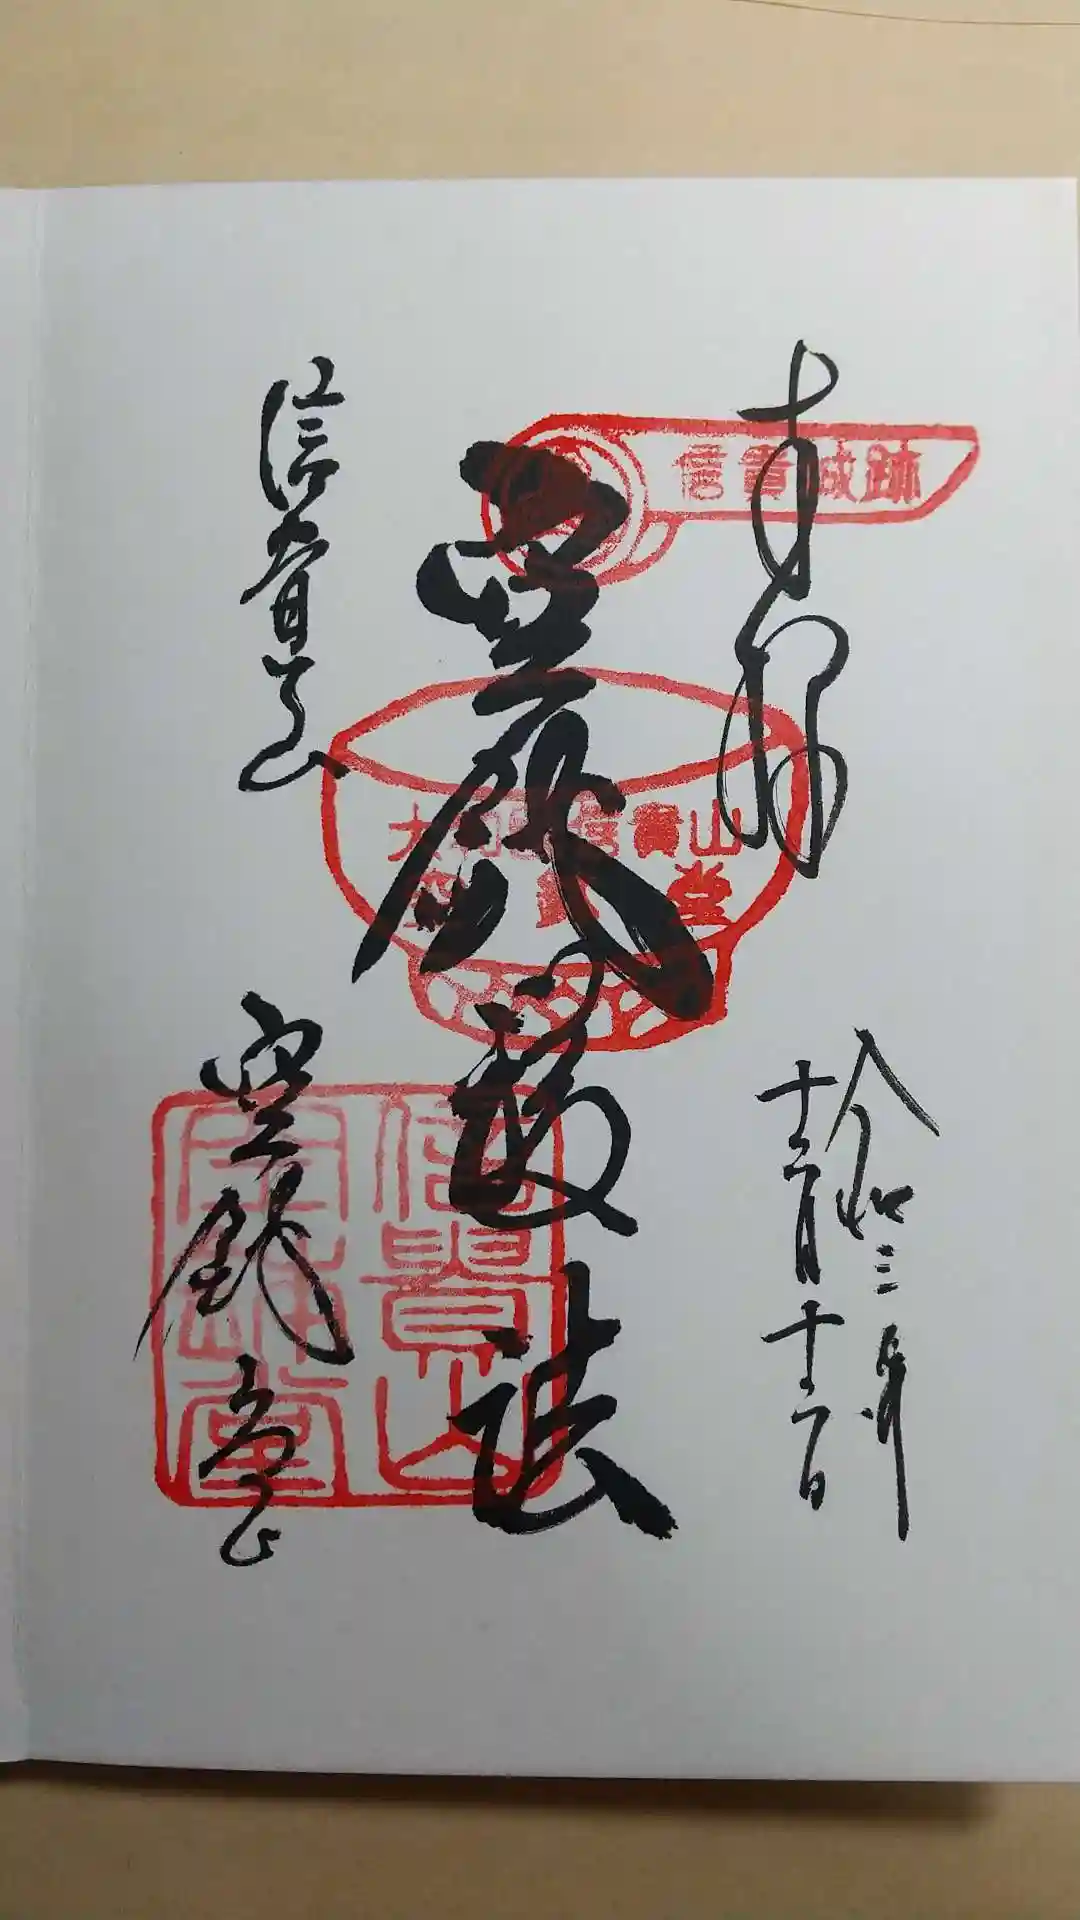 奉拝
令和三年
十二月十二日
空鉢護法
信貴山
空鉢堂
信貴城跡
大和国信貴山
空鉢堂
信貴山
空鉢堂